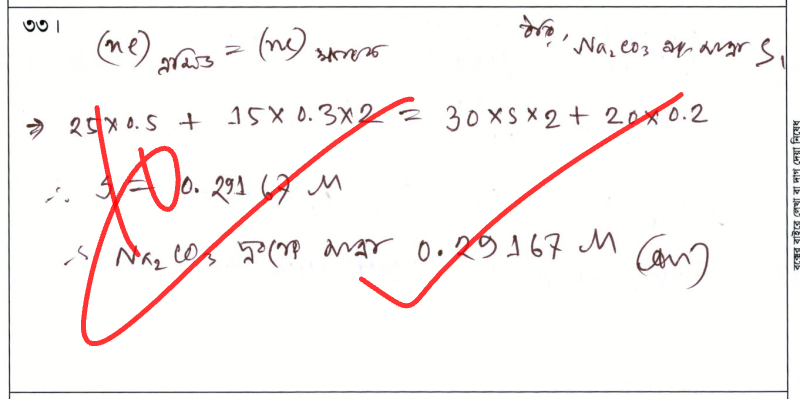 ৩৩।
(ne) এসিড = (ne) ক্ষারক ধরি, Na₂CO₃ এর মাত্রা S₁
⇒ 25×0.5 + 15×0.3×2 = 30×S×2 + 20×0.2
∴ S = 0.29167 M
∴ Na₂CO₃ দ্রবণের মাত্রা 0.29167 M (Ans)
10
বক্সের বাইরে লেখা বা দাগ দেয়া নিষেধ